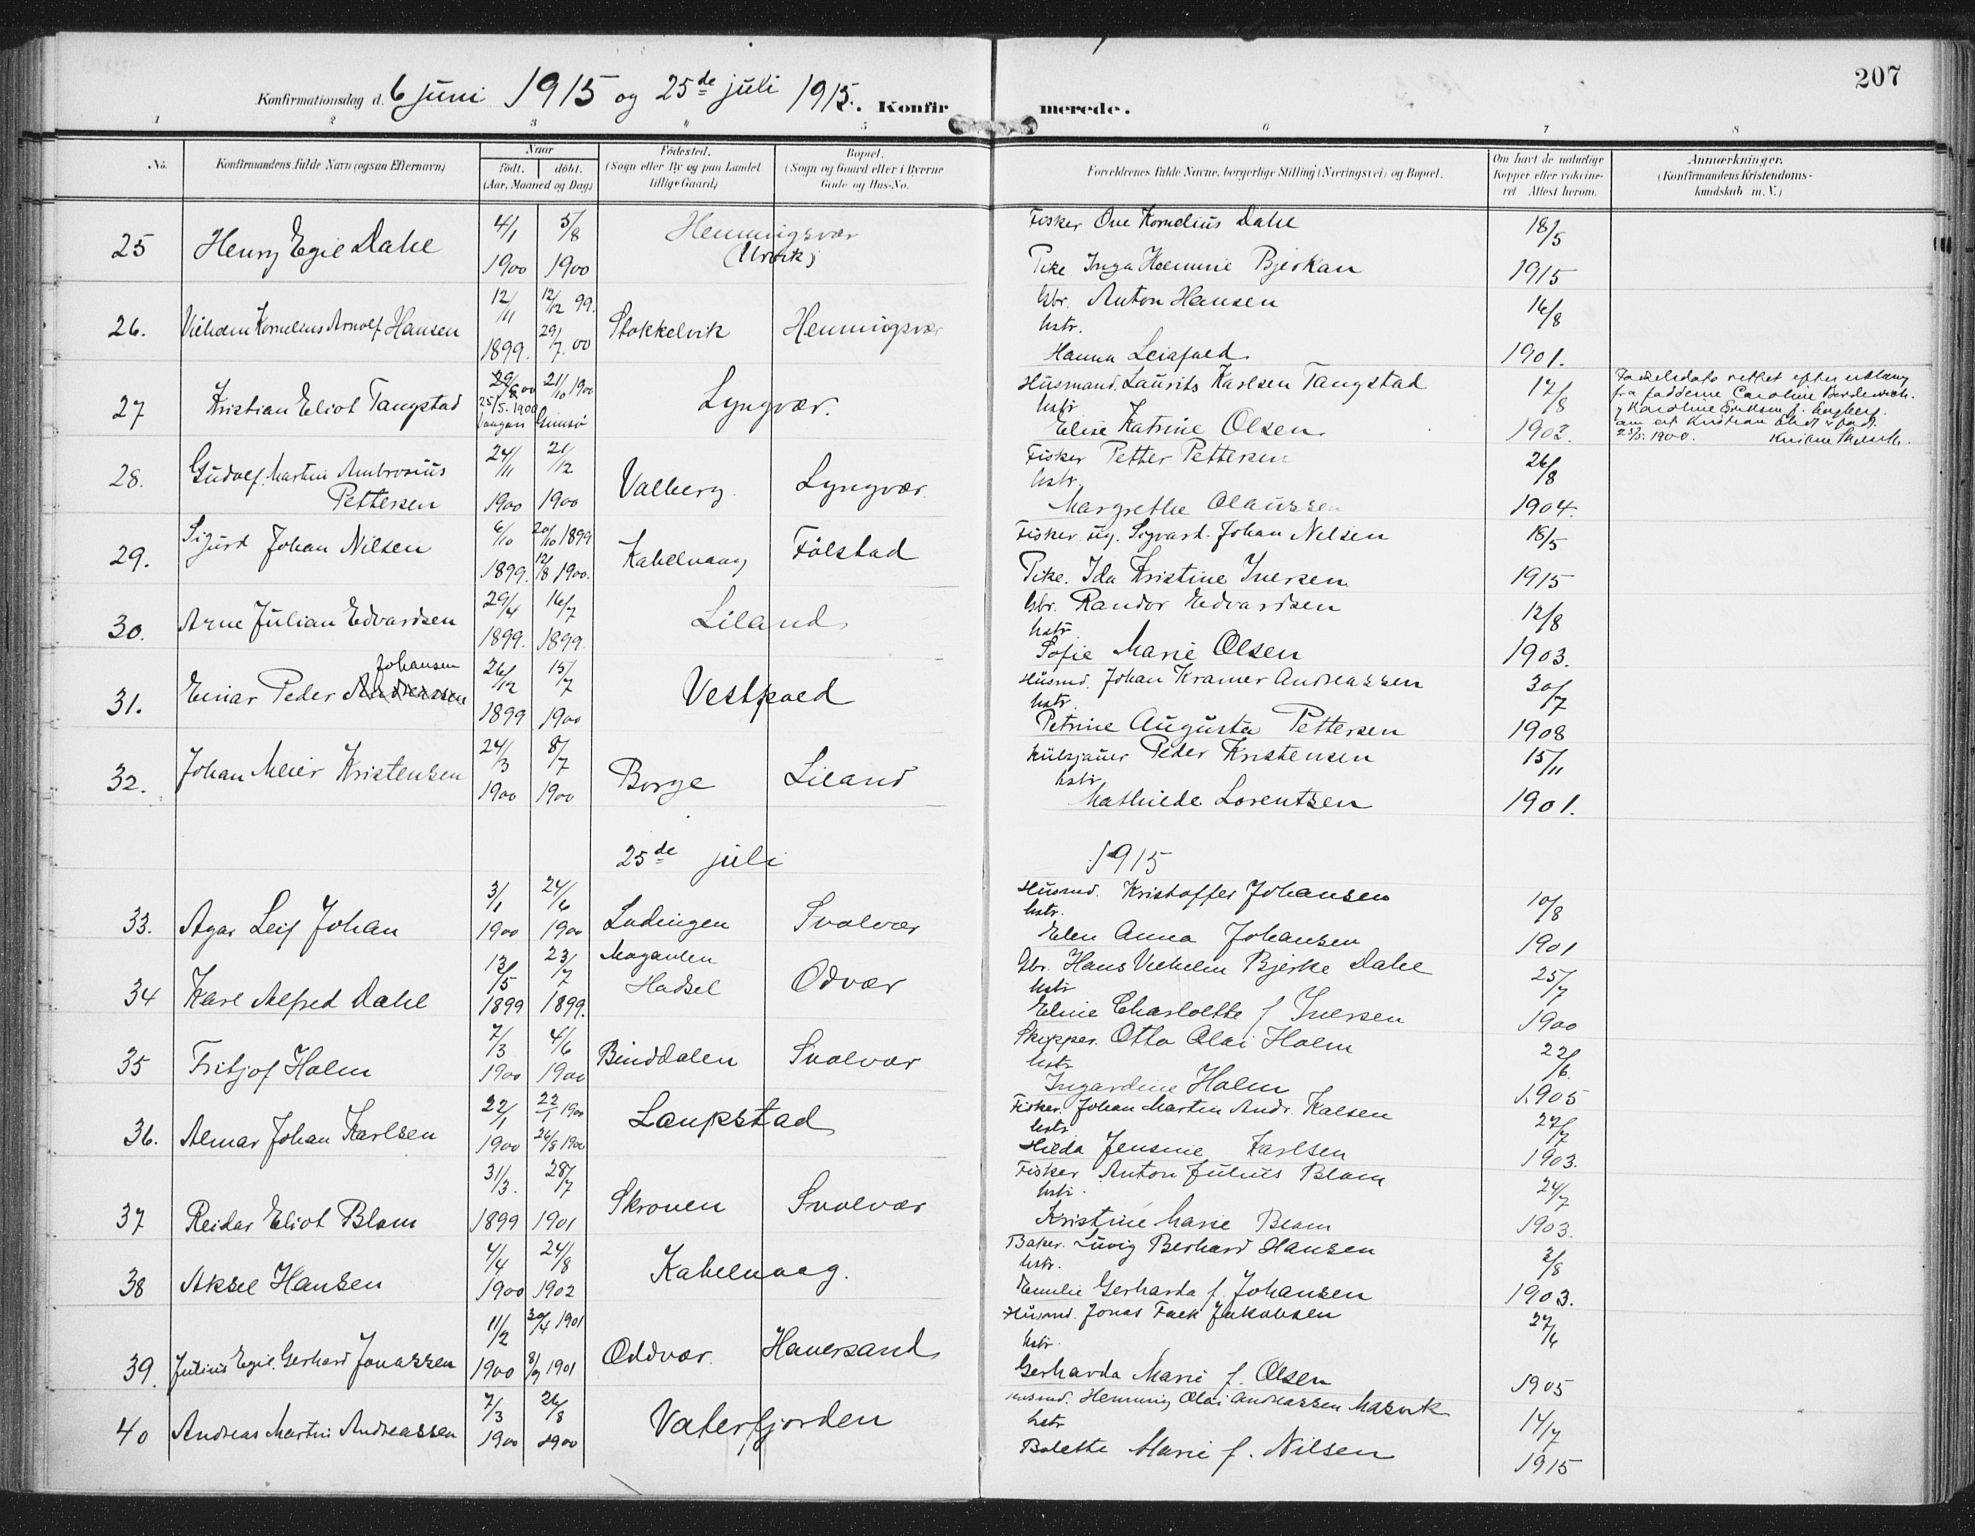 207
Konfirmationsdag d. 6 juni 1915 og 25de juli 1915. Konfirmerede.
1 2 3 4 5 6 7 8
No. Konfirmandens fulde Navn (ogsaa Efternavn) Naar født. døbt. (Aar, Maaned og Dag) Fødested. (Sogn eller By og paa Landet tillige Gaard) Bopæl. (Sogn og Gaard eller i Byerne Gade og Hus-No. Forældrenes fulde Navne, borgerlige Stilling (Næringsvei) og Bopæl. Om havt de naturlige Kopper eller vakcineret Attest herom. Anmærkninger. (Konfirmandens Kristendomskundskab m. V.)
25 Henry Egil Dahl 4/1 1900 5/8 1900 Henningsvær Fisker Ove Kornelius Dahl 18/5
Pike Inga Bjerkan 1915
26. Vilhelm Kornelius Arnolf Hansen 12/11 1899. 12/12 99. 29/7 00 Stokkelvik Henningsvær Gbr. Anton Hansen 16/8
hstr. Hanna Leisfold 1901.
27 Kristian Eliot Tangstad 25/5. 1900 21/10 1900 Gimsø Lyngvær. Husmand. Laurits Karlsen Tangstad 12/8
hstr. Elise Katrine Olsen 1902.
28. Gudolf Martin Ambrosius Pettersen 24/11 1900 21/12 1900 Valberg. Lyngvær. Fisker Petter Pettersen 26/8
hstr. Margrethe Olaussen 1904.
29. Sigurd Johan Nilsen 6/10 1899. 20/10 1899 12/8 1900. Kabelvaag Følstad Fisker ug. Sigvard Johan Nilsen 18/5
Pike. Ida Kristine Iversen 1915
30. Arne Julian Edvardsen 29/4 1899. 16/7 1899. Liland Gbr. Randor Edvardsen 12/8
hstr. Sofie Marie Olsen 1903.
31. Einar Peder Andreassen Johansen 26/12 1899 15/7 1900 Vestpold Husmd. Johan Kramer Andreassen 30/7
hstr. Petrine Augusta Pettersen 1908
32. Johan Meier Kristensen 24/3 1900 8/7 1900 Borge Liland Peder Kristensen 15/11
hstr. Mathilde Lorentsen 1901.
25de juli 1915
33. Agar Leif Johan 3/1 1900 24/6 1900 Lødingen Svolvær Husmd. Kristoffer Johansen 10/8
hstr. Elen Anna Johansen 1901
34 Karl Alfred Dahl 13/5 1899 23/7 1899. Hadsel Odvær Gbr. Hans Vilhelm Bjerke Dahl 25/7
hstr Eline Charlotte f Iversen 1900
35 Fritjof Holm 7/3 1900 4/6 1900 Binddalen Svolvær Skipper. Otto Olai Holm 22/6.
hstr Ingardine Holm 1905
36. Almar Johan Karlsen 22/1 1900 22/1 1900 26/8 1900 Laupstad Fisker. Johan Marten Andr. Kalsen 27/7
hstr. Hilda Jensine Karlsen 1903.
37 Reidar Eliot Blom 31/3. 1899 28/7 1901 Skroven Svolvær Fisker Anton Julius Blom 24/7
hstr. Kristine Marie Blom 1903.
38 Aksel Hansen 4/4 1900 24/8 1902 Kabelvaag. Baker. Luvig Berhard Hansen 3/8
hstr. Emilie Gerharda f. Johansen 1903.
39. Julius Egil Gerhard Jonassen 11/2 1900 30/4 1901 8/9 1901 Oddvær. Haversand Husmd. Jonas Falk Jakobsen 27/6
hstr. Gerharda Marie f. Olsen 1905
40 Andreas Martin Andreassen 7/3 1900 26/8 1900 Vaterfjorden Husmd. Henning Olai Andreassen Masvik 14/7
hstr Bolette Marie f. Nilsen 1915